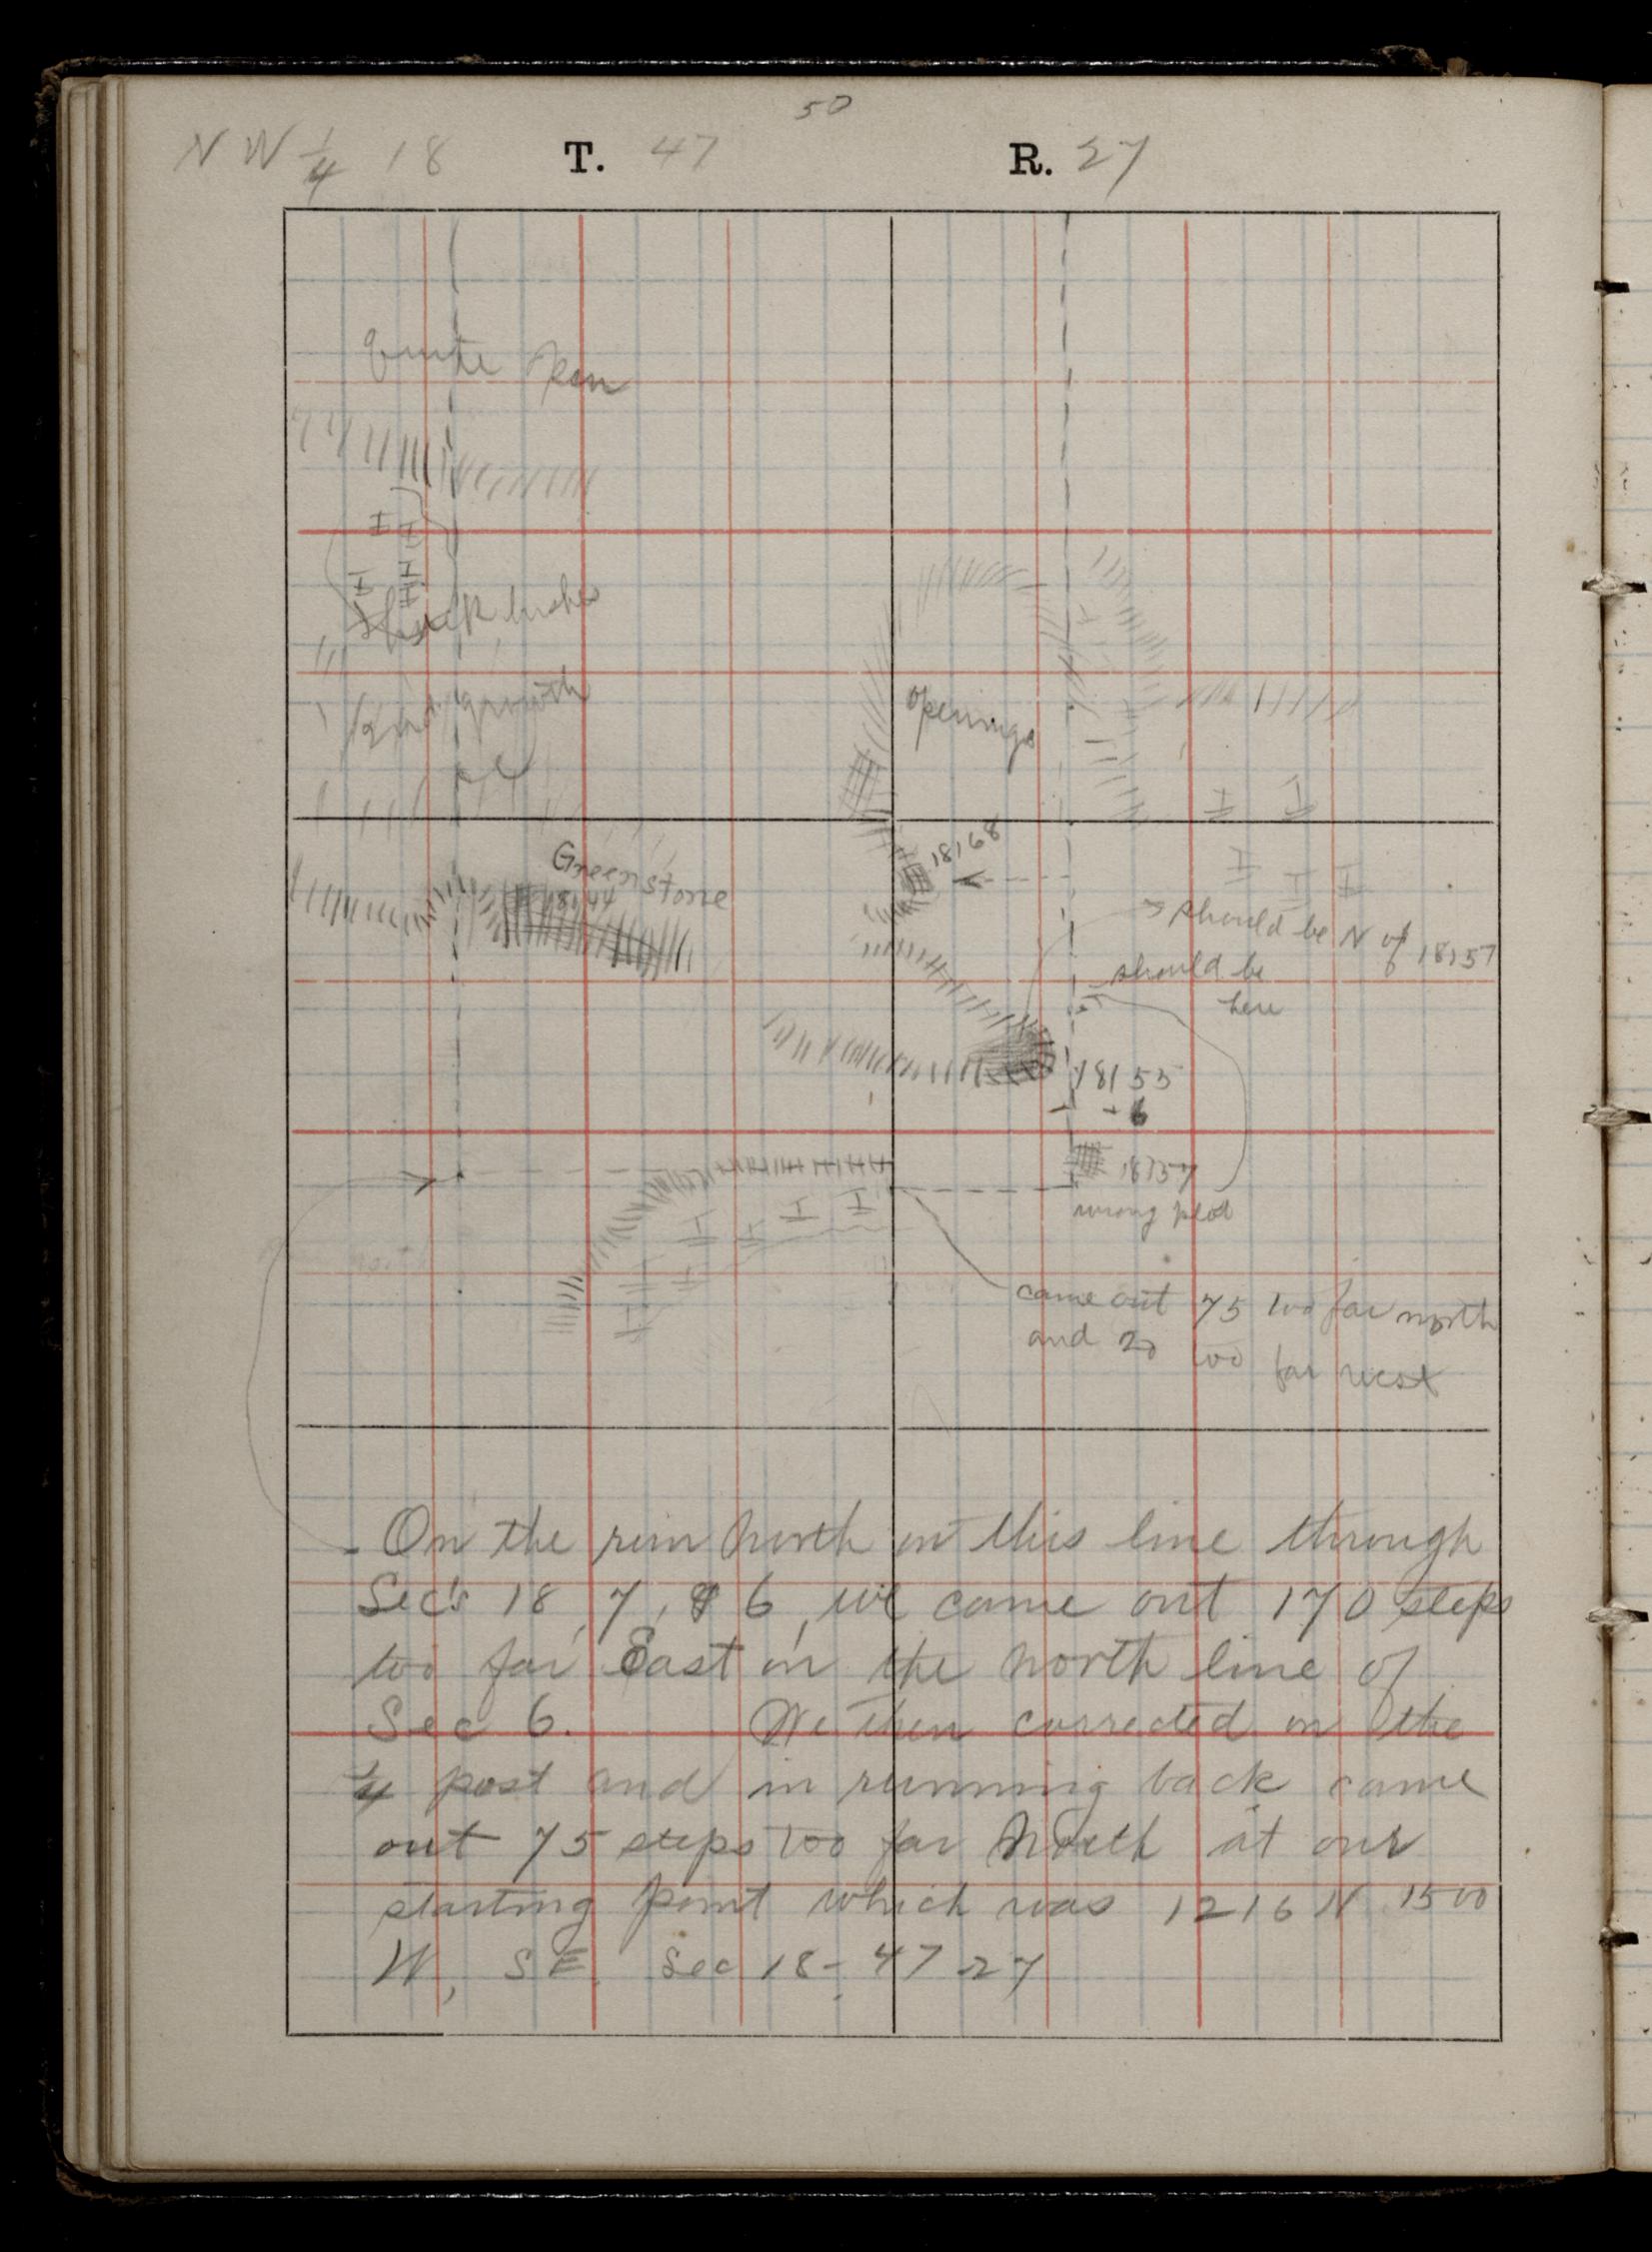 50
NW 1/4 18 T. 47 R. 27
Quite Open
Thick bushes
2nd growth
openings
18168
Greenstone
18144
should be N of 18157
should be
here
18155
+ 6
18157
wrong plot
came out 75 too far north
and 20 too far west
On the run North on this line through
Sec's 18, 7, & 6, we came out 170 steps
too far East on the north line of
Sec 6. We then corrected on the
1/4 post and in running back came
out 75 steps too far North at our
starting point which was 1216 N 1500
W, S.E. Sec 18-47 27